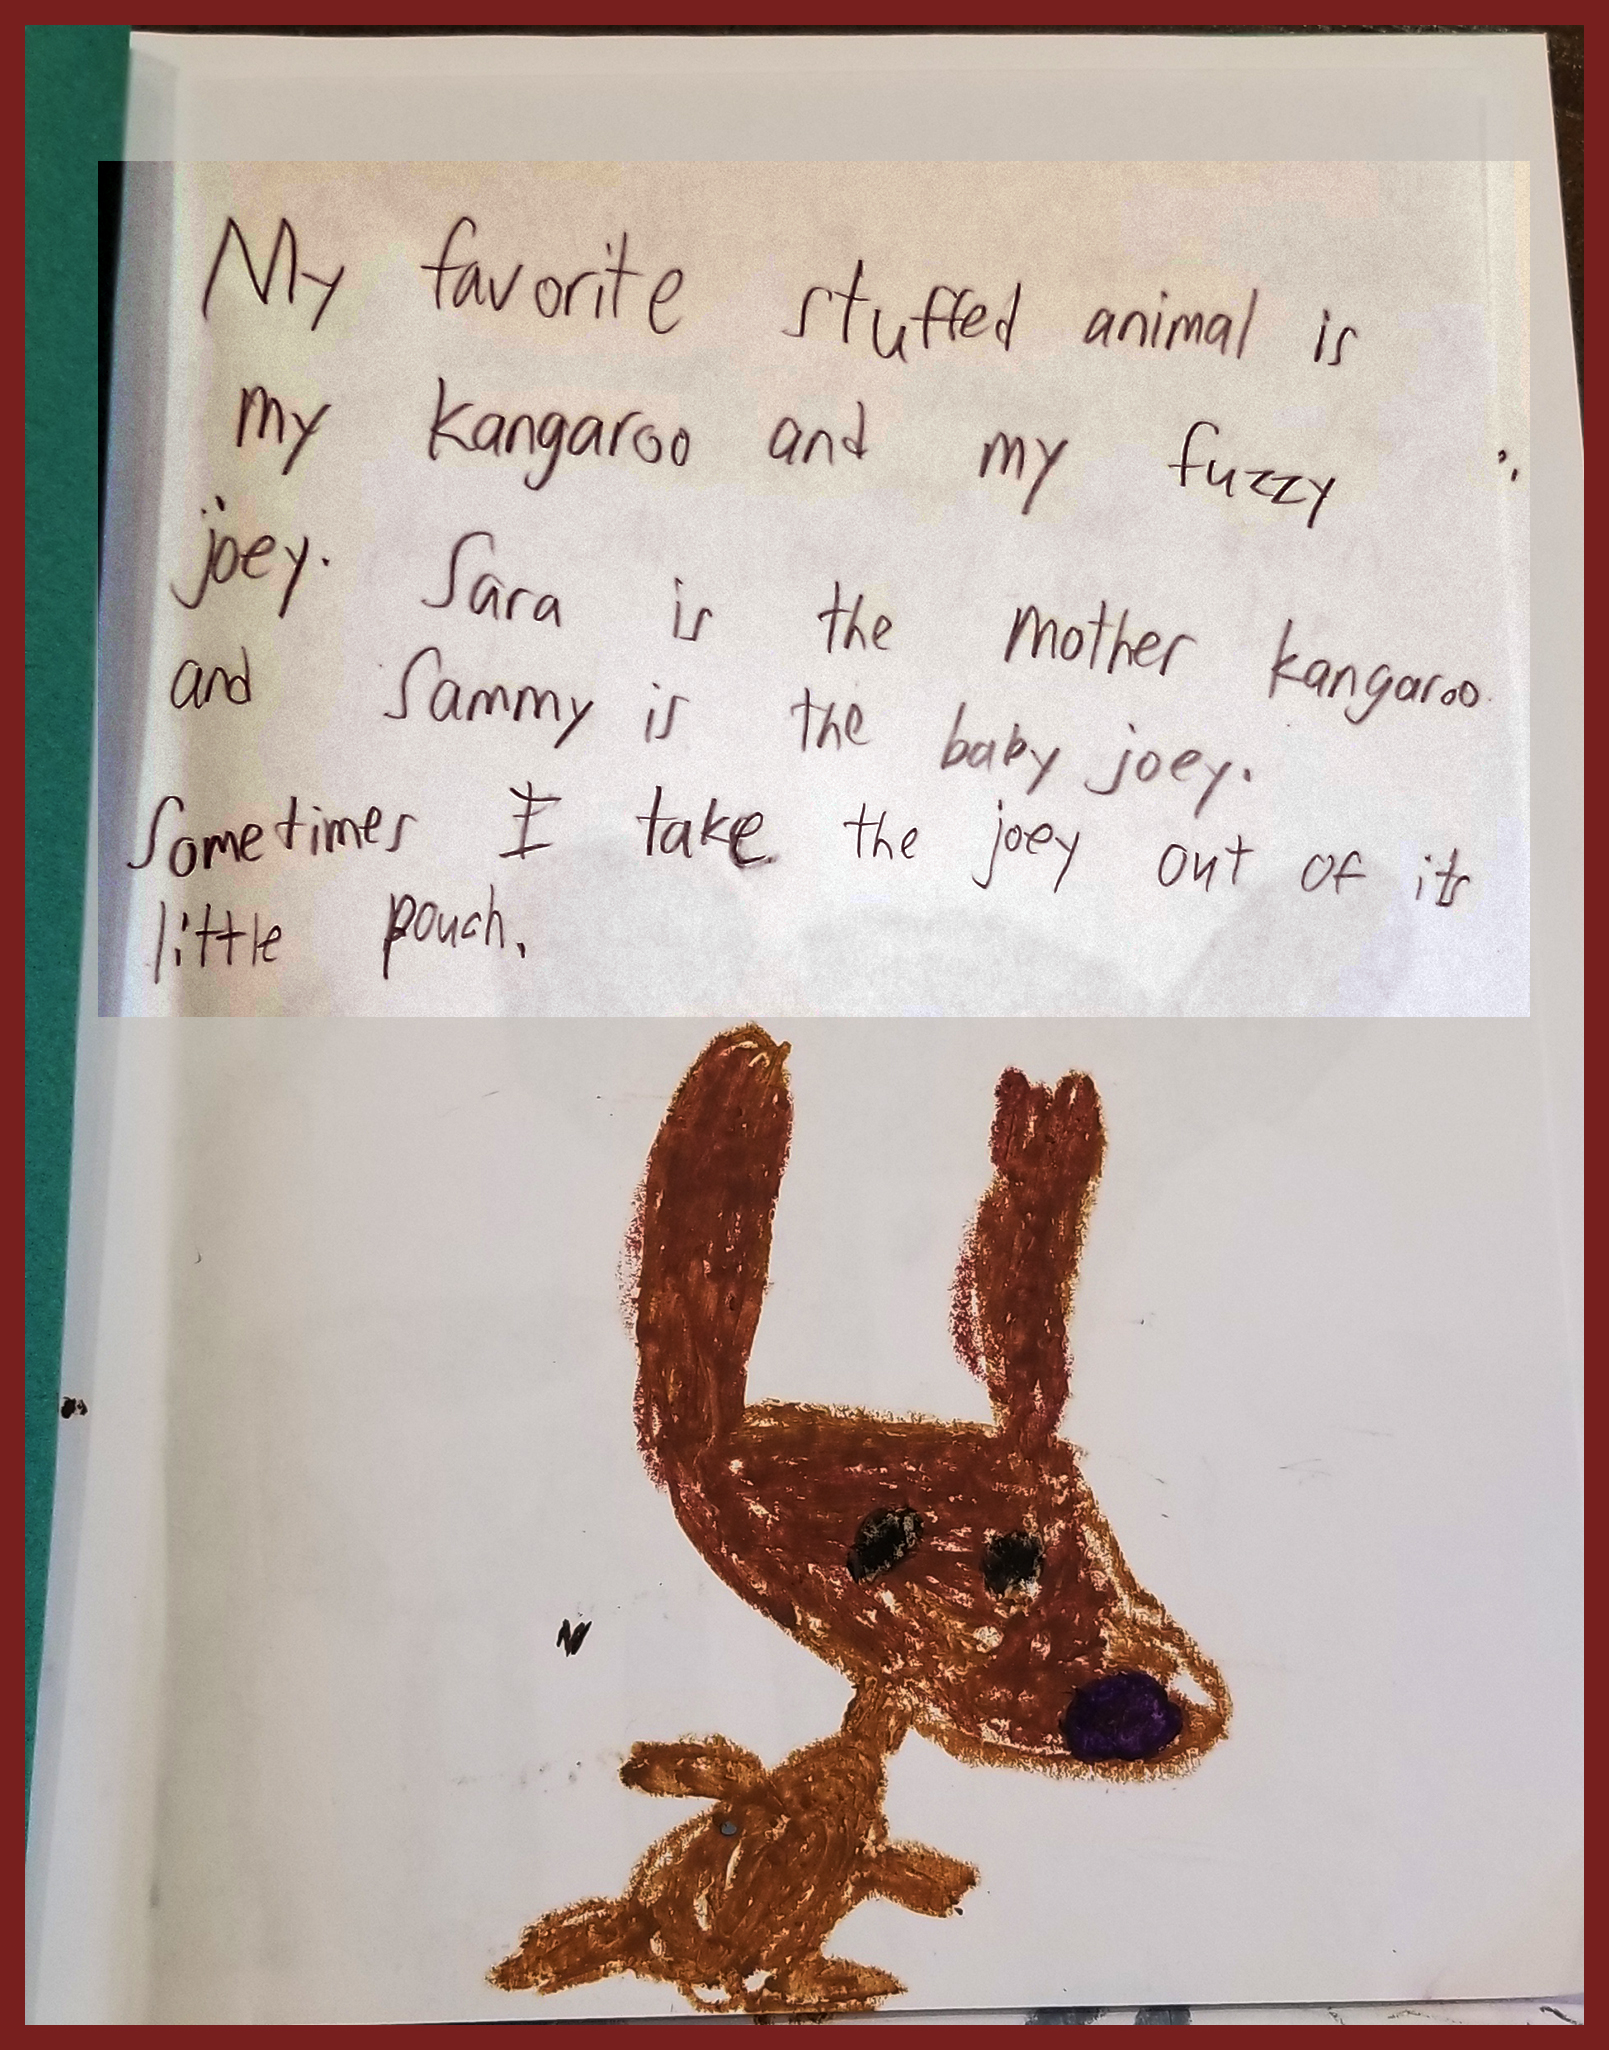 My favorite stuffed animal is
my kangaroo and my fuzzy
joey. Sara is the mother kangaroo
and Sammy is the baby joey.
Sometimes I take the joey out of its
little pouch.